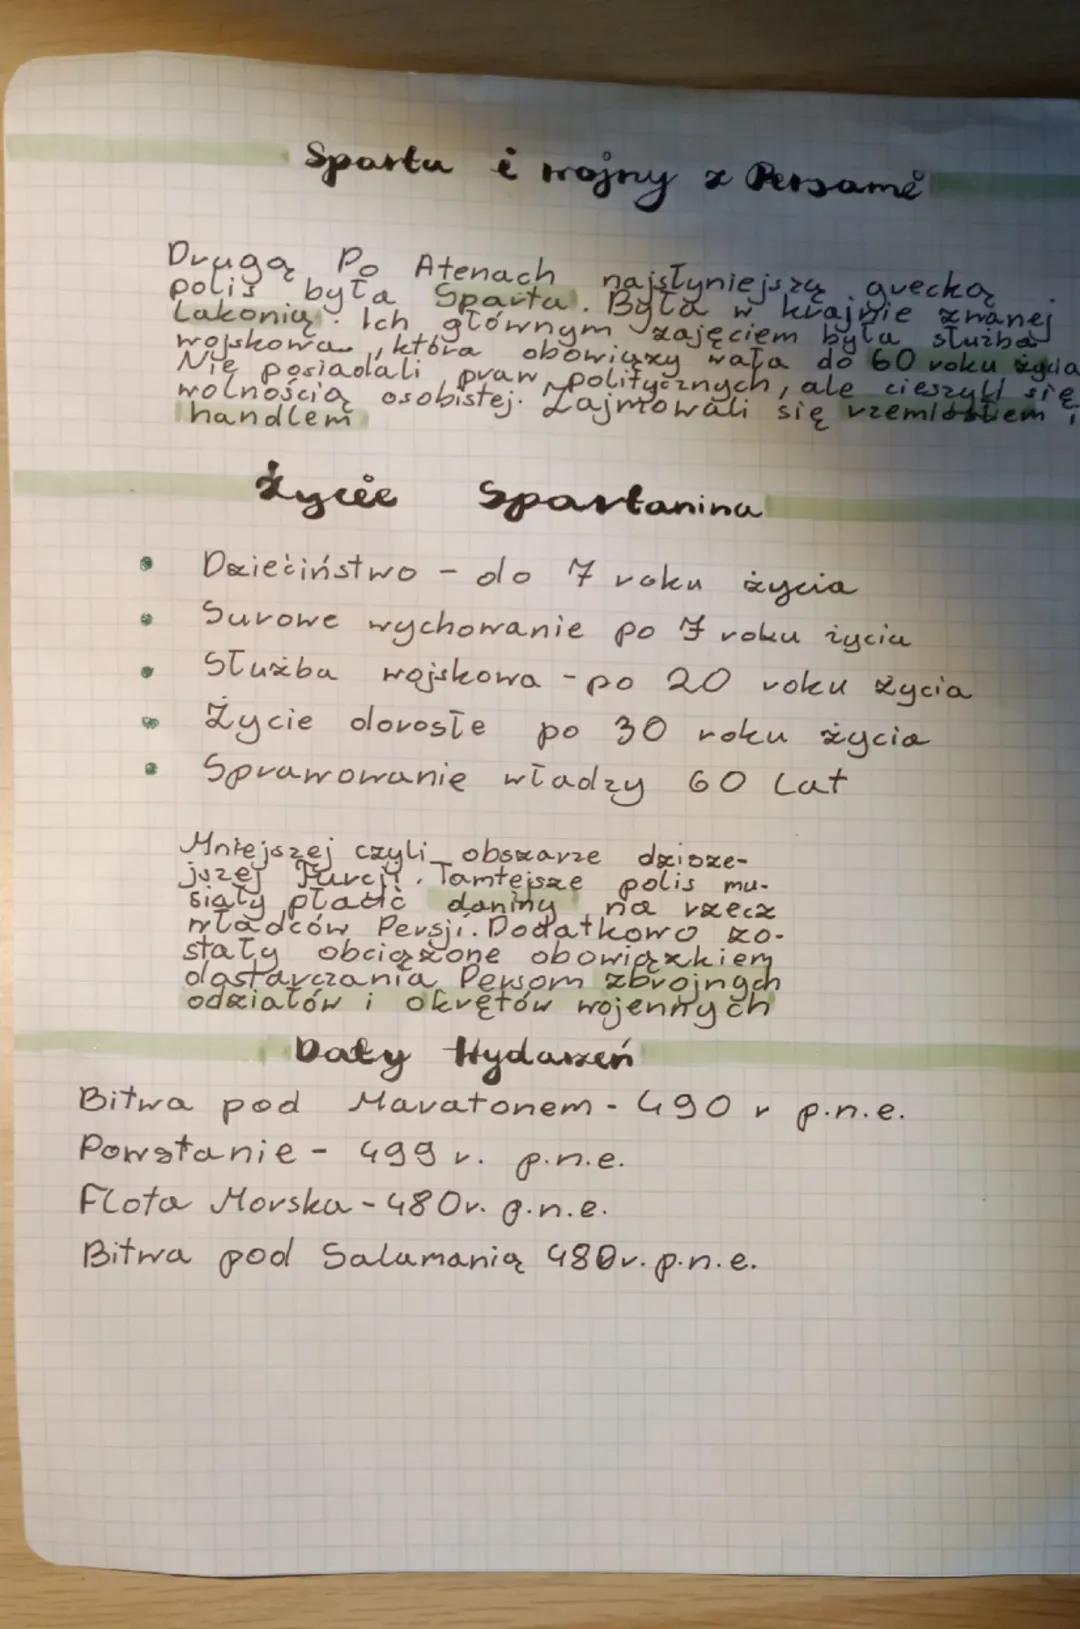 Sparta i wojny z Persami
Drugą Po Atenach najsłyniejszą grecką
polis była Sparta. Była w krajnie zwanej
Lakonią. Ich głównym zajęciem była służba
wojskowa, która obowiązy wała do 60 roku życia
Nie posiadali praw politycznych, ale cieszyli się
wolnością osobistej. Zajmowali się rzemiosłem i
handlem
Życie Spartanina
Dziećiństwo - do 7 roku życia
Surowe wychowanie po 7 roku życia
Służba wojskowa - po 20 roku życia
Życie dorosłe po 30 roku życia
Sprawowanie władzy 60 Lat
Mniejszej czyli obszarze dzisze-
jszej Turcji. Tamtejsze polis mu-
siały płacić daniny na rzecz
władców Persji. Dodatkowo zo-
stały obciążone obowiązkiem
dostarczania Persom zbrojnych
odziałów i okrętów wojennych
Daty Wydarzeń
Bitwa pod Maratonem - 490 r p.n.e.
Powstanie - 499 r. p.n.e.
Flota Morska - 480r. p.n.e.
Bitwa pod Salamanią 480r. p.n.e.